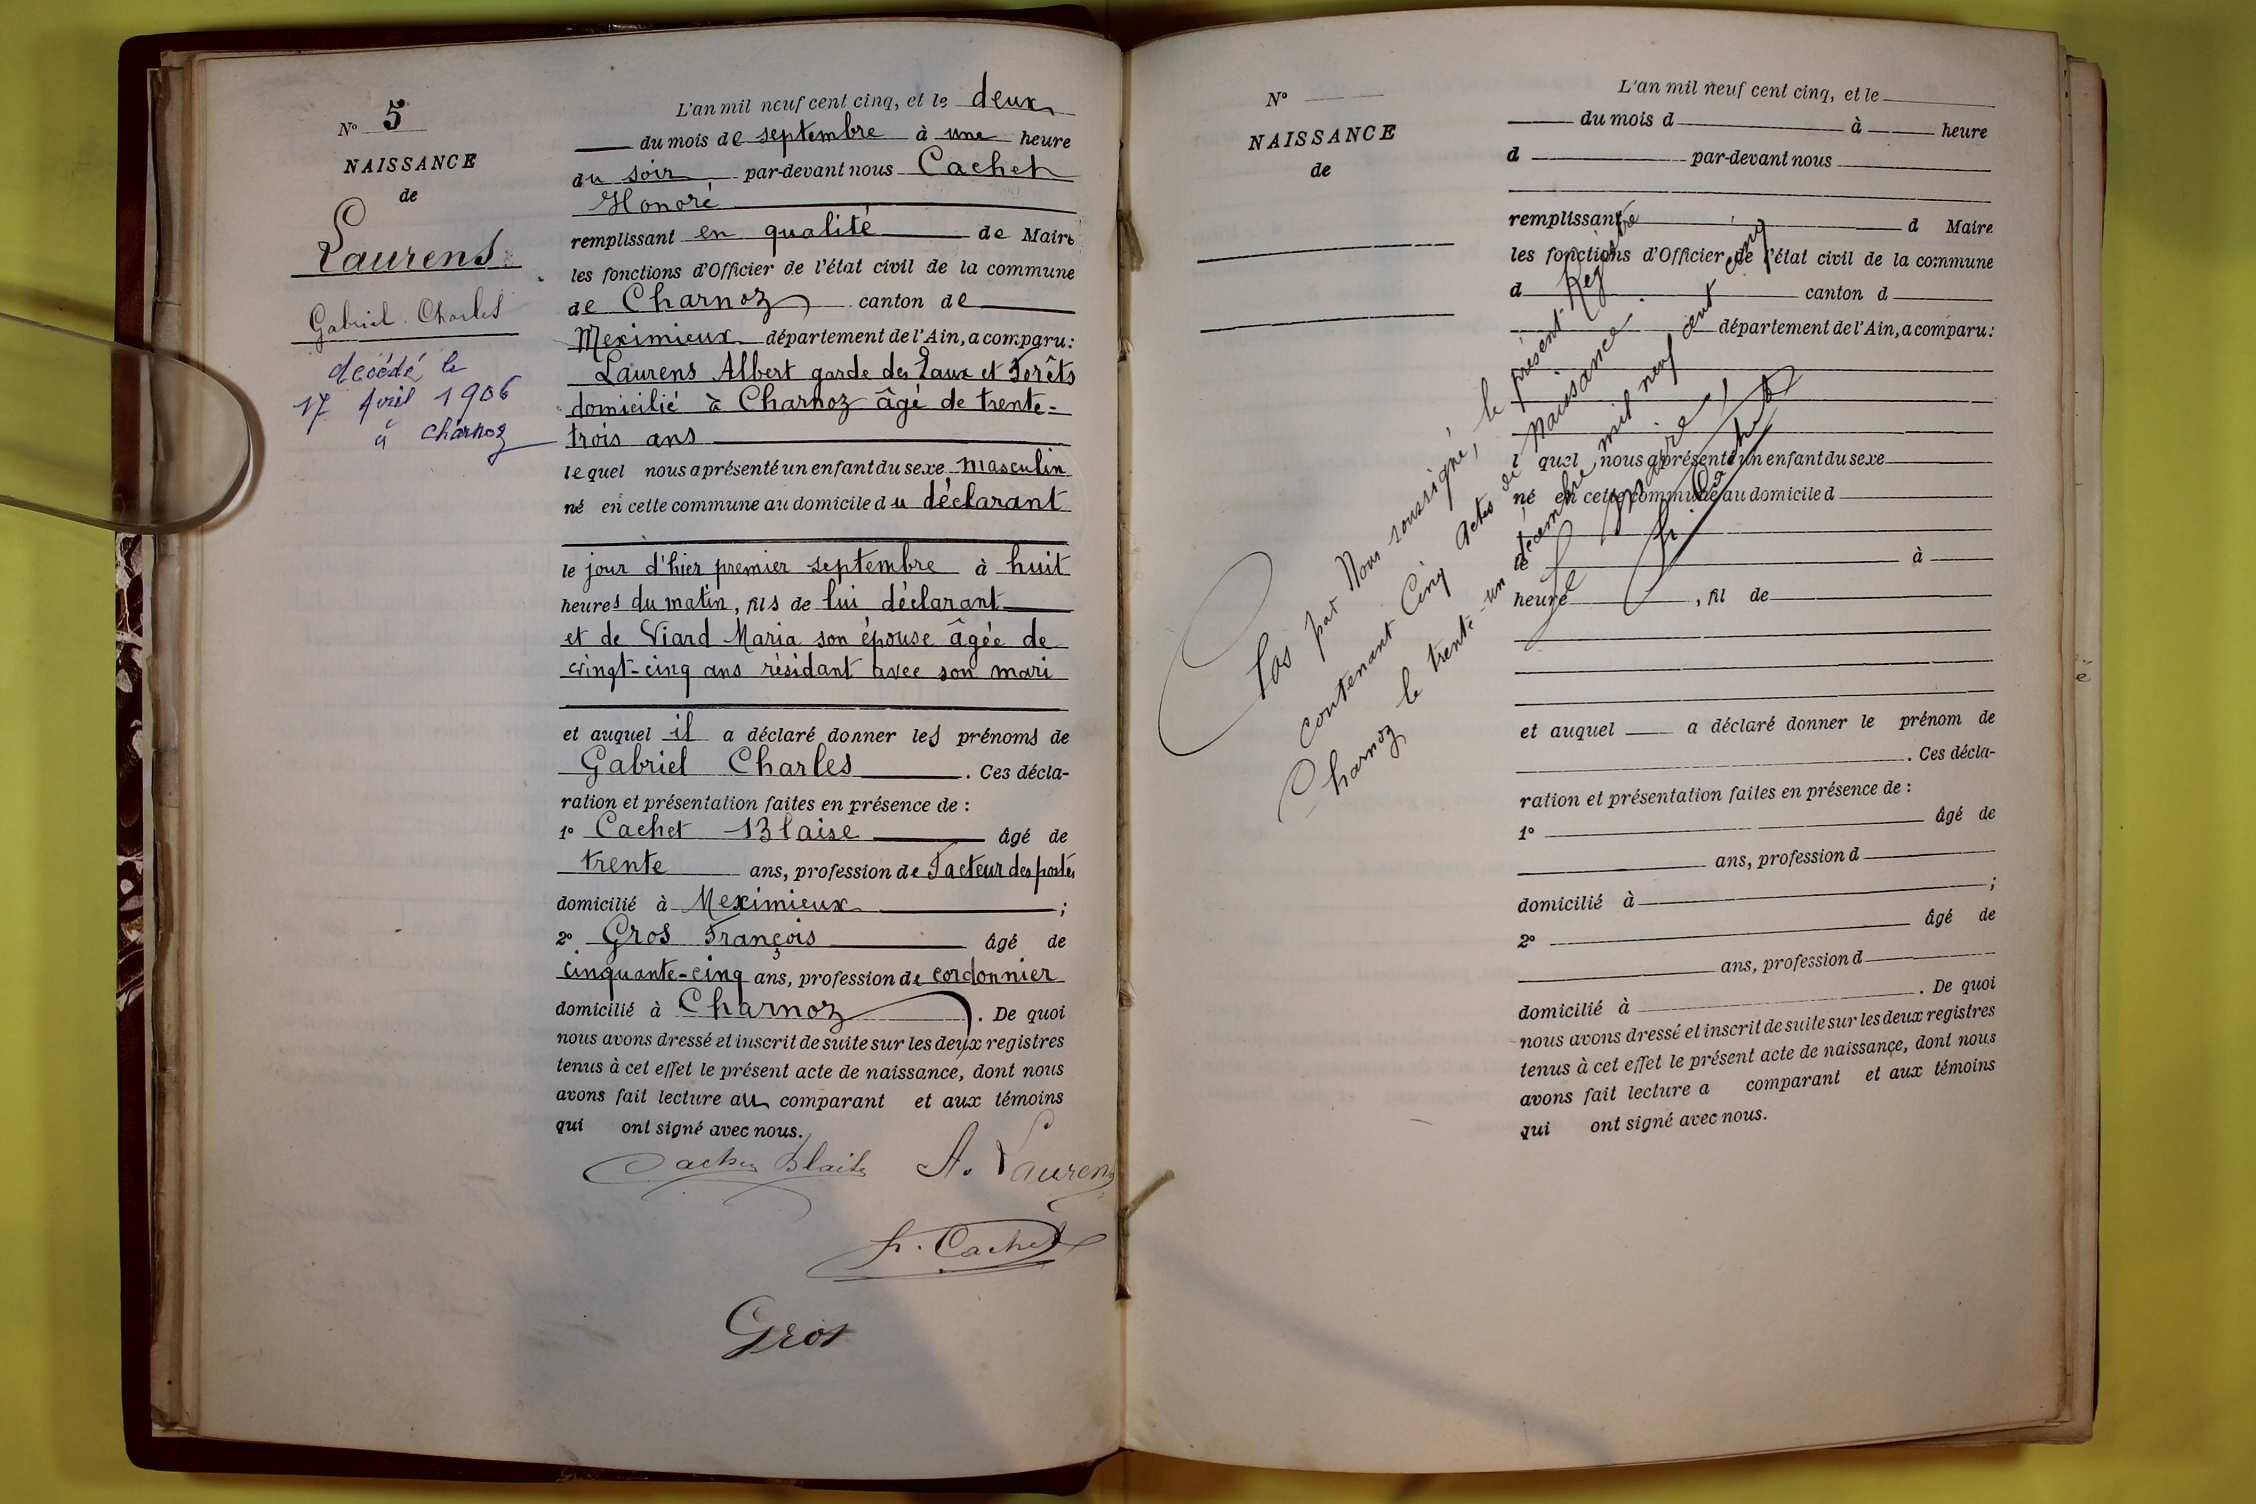 N° 5
NAISSANCE
de
Laurens
Gabriel Charles
décédé le
17 Avril 1906
à Charnoz
L'an mil neuf cent cinq, et le deux
du mois de septembre à une heure
du soir par-devant nous Cachet
Honoré
remplissant en qualité de Maire
les fonctions d'Officier de l'état civil de la commune
de Charnoz canton de
Meximieux département de l'Ain, a comparu:
Laurens Albert garde des Eaux et Forêts
domicilié à Charnoz âgé de trente-
trois ans
lequel nous a présenté un enfant du sexe masculin
né en cette commune au domicile du déclarant
le jour d'hier premier septembre à huit
heures du matin, fils de lui déclarant
et de Viard Maria son épouse âgée de
vingt-cinq ans résidant avec son mari
et auquel il a déclaré donner les prénoms de
Gabriel Charles. Ces décla-
ration et présentation faites en présence de :
1° Cachet Blaise âgé de
trente ans, profession de Facteur des postes
domicilié à Meximieux ;
2° Gros François âgé de
cinquante-cinq ans, profession de cordonnier
domicilié à Charnoz. De quoi
nous avons dressé et inscrit de suite sur les deux registres
tenus à cet effet le présent acte de naissance, dont nous
avons fait lecture au comparant et aux témoins
qui ont signé avec nous.
Cachet Blaise A. Laurens
h. Cachet
Gros
N°
NAISSANCE
de
L'an mil neuf cent cinq, et le
du mois d à heure
d par-devant nous
remplissant d Maire
les fonctions d'Officier de l'état civil de la commune
d canton d
département de l'Ain, a comparu:
l quel nous a présenté un enfant du sexe
né en cette commune au domicile d
le à
heure , fil de
et auquel a déclaré donner le prénom de
. Ces décla-
ration et présentation faites en présence de :
1° âgé de
ans, profession d
domicilié à ;
2° âgé de
ans, profession d
domicilié à . De quoi
nous avons dressé et inscrit de suite sur les deux registres
tenus à cet effet le présent acte de naissance, dont nous
avons fait lecture a comparant et aux témoins
qui ont signé avec nous.
Clos par Nous soussigné, le présent Registre
contenant Cinq Actes de Naissance.
Charnoz le trente-un décembre mil neuf cent cinq
Le Maire,
h. Cachet